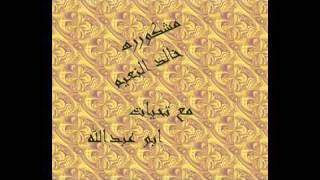 مشكوررره
خالد الزعيم
مع تحيات
ابو عبدالله